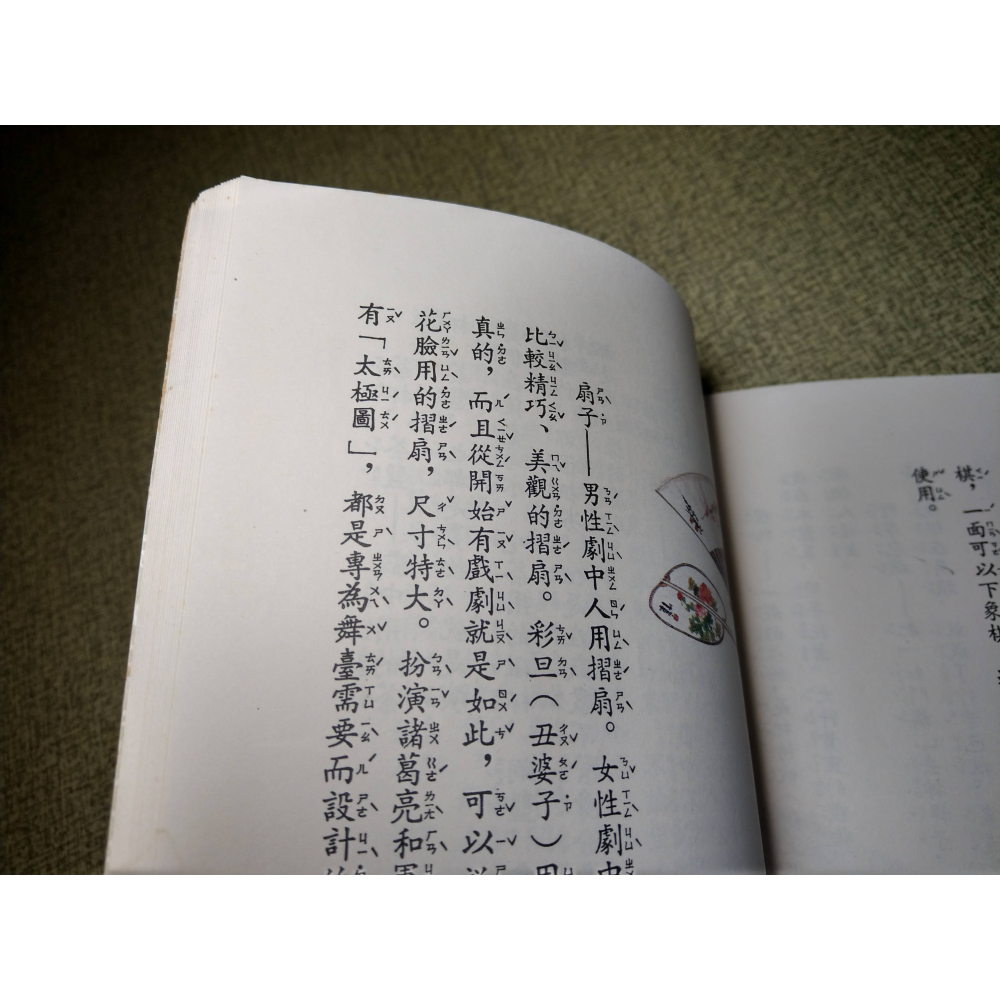 棋，一面可以下象棋
使用。
扇子——男性劇中人用摺扇。女性劇中
比較精巧、美觀的摺扇。彩旦（丑婆子）用
真的，而且從開始有戲劇就是如此，可以
花臉用的摺扇，尺寸特大。扮演諸葛亮和
有「太極圖」，都是專為舞臺需要而設計